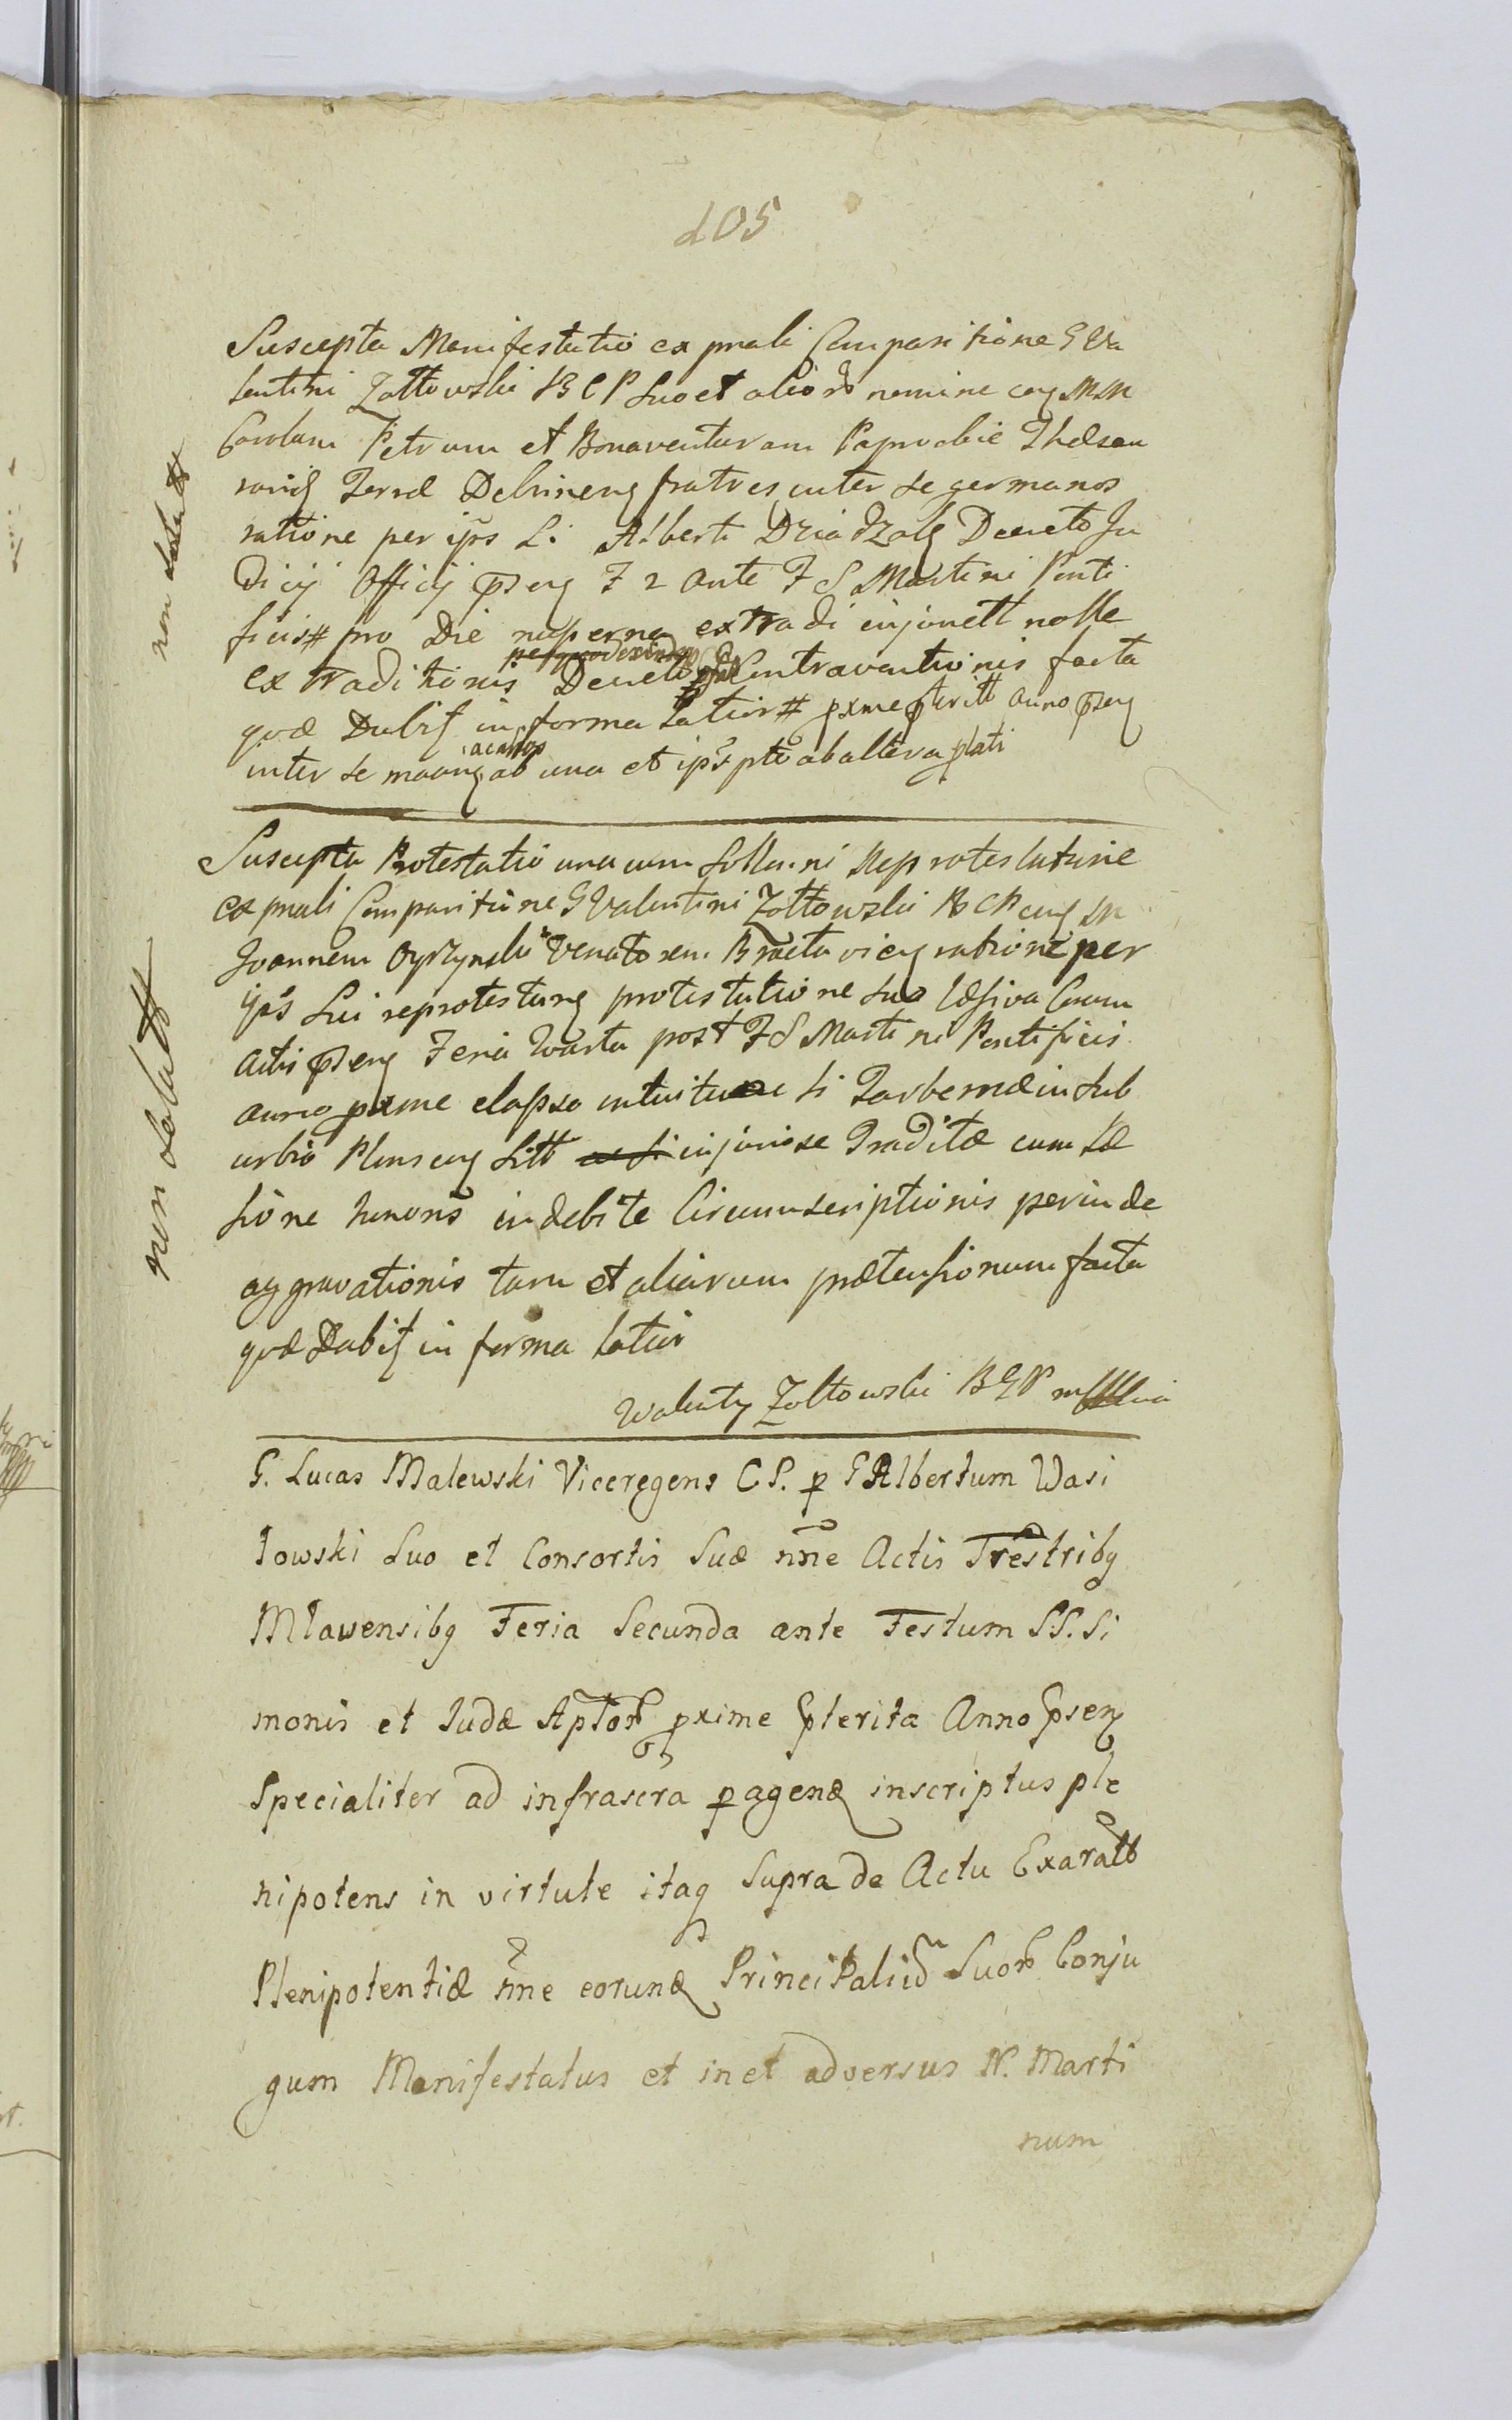 105
Suscepta Manifestatio ex pnali Comparitione G Va
lentini Zołtowski B C P suo et alior nomine cog MM
Carolum Petrum et Bonaventuram Paprockie Thesau
rarid Terræ Debrineng fratres inter se germanos
ratione per ipős L. Alberti Dziadzalg Decreto Ju
dicij Officij pseng F 2 ante F S Martini Ponti
ficis # pro Die nuperna extradi injonctt nolle
perquodexinde
ex traditionis Decreto Contraventionis facta
quæ Dubit in forma Latior # pxme pteritt anno pseng
acarop
inter se moong ab una et ipős pte ab altera ptati
non oblatt
Suscepta Protestatio una cum Sollenni Reprotestatione
ex pnali Comparitione G Valentini Zołtowski B C P cong M
Joannem Oyrzynski Venatorem Bracta vieng ratione per
ipős sui reprotestang protestatione sua læsiva Coram
actis pseng Feria Quarta post F S Martini Pontificis
anno pxme elapso intuitu Si Tarbernæ in sub
urbio Plonseng Sitt injuriose Traditæ cum Læ
sione honoris indebite Circumscriptionis perinde
aggravationis tam et aliarum prætensionum facta
quæ Dabit in forma latior
Walenty Zołtowski B G P mppria
non oblatt
G. Lucas Malewski Viceregens C P. p G Albertum Wasi
łowski Suo et Consortis Suæ nne Actis Trestribq
Mławensibq Feria Secunda ante Festum SS. Si
monis et Judæ Aptor pxime pterita Anno psenq
Specialiter ad infrascra pagenq inscriptus ple
nipotens in virtute itaq Supra de Actu Exaratt
Plenipotentiæ nne eorunq Principaliu Suor Conju
gum Manifestatus et in et adversus N. Marti
num